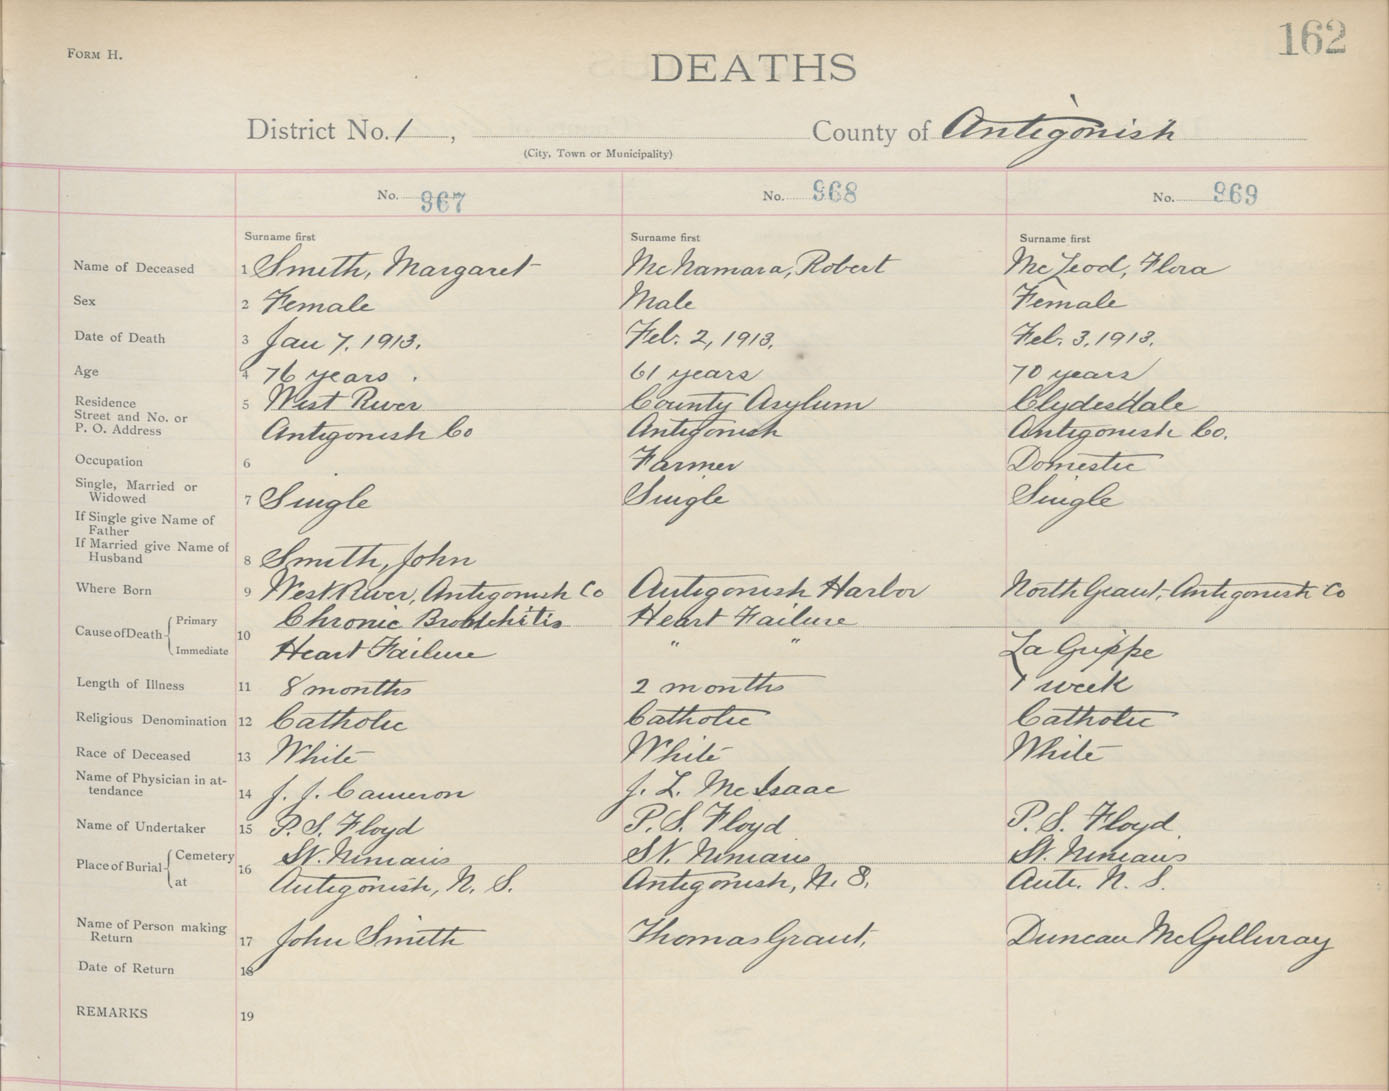 FORM H.
162
DEATHS
District No. 1, County of Antigonish
(City, Town or Municipality)
No. 967 No. 968 No. 969
Surname first Surname first Surname first
Name of Deceased 1 Smith, Margaret McNamara, Robert McLeod, Flora
Sex 2 Female Male Female
Date of Death 3 Jan 7. 1913. Feb. 2, 1913. Feb. 3. 1913.
Age 4 76 years. 61 years 70 years
Residence 5 West River County Asylum Clydesdale
Street and No. or
P. O. Address Antigonish Co Antigonish Antigonish Co.
Occupation 6 Farmer Domestic
Single, Married or
Widowed 7 Single Single Single
If Single give Name of
Father
If Married give Name of
Husband 8 Smith, John
Where Born 9 West River, Antigonish Co Antigonish Harbor North Grant, Antigonish Co
Cause of Death Primary Chronic Bronchitis Heart Failure
10
Immediate Heart Failure " " La Grippe
Length of Illness 11 8 months 2 months 1 week
Religious Denomination 12 Catholic Catholic Catholic
Race of Deceased 13 White White White
Name of Physician in at-
tendance 14 J. J. Cameron J. L. McIsaac
Name of Undertaker 15 P. S. Floyd P. S. Floyd P. S. Floyd.
Place of Burial Cemetery St. Ninians St. Ninians St. Ninians
16
at Antigonish, N. S. Antigonish, N. S. Anti. N. S.
Name of Person making
Return 17 John Smith Thomas Grant, Duncan McGillivray
Date of Return 18
REMARKS 19